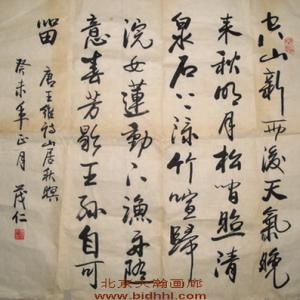 空山新雨後天氣晚
来秋明月松間照清
泉石上流竹喧歸
浣女蓮動下漁舟随
意春芳歇王孫自可
留
唐王維詩山居秋暝
癸未年正月 茂仁
北京大瀚画廊
www.bjdhhl.com